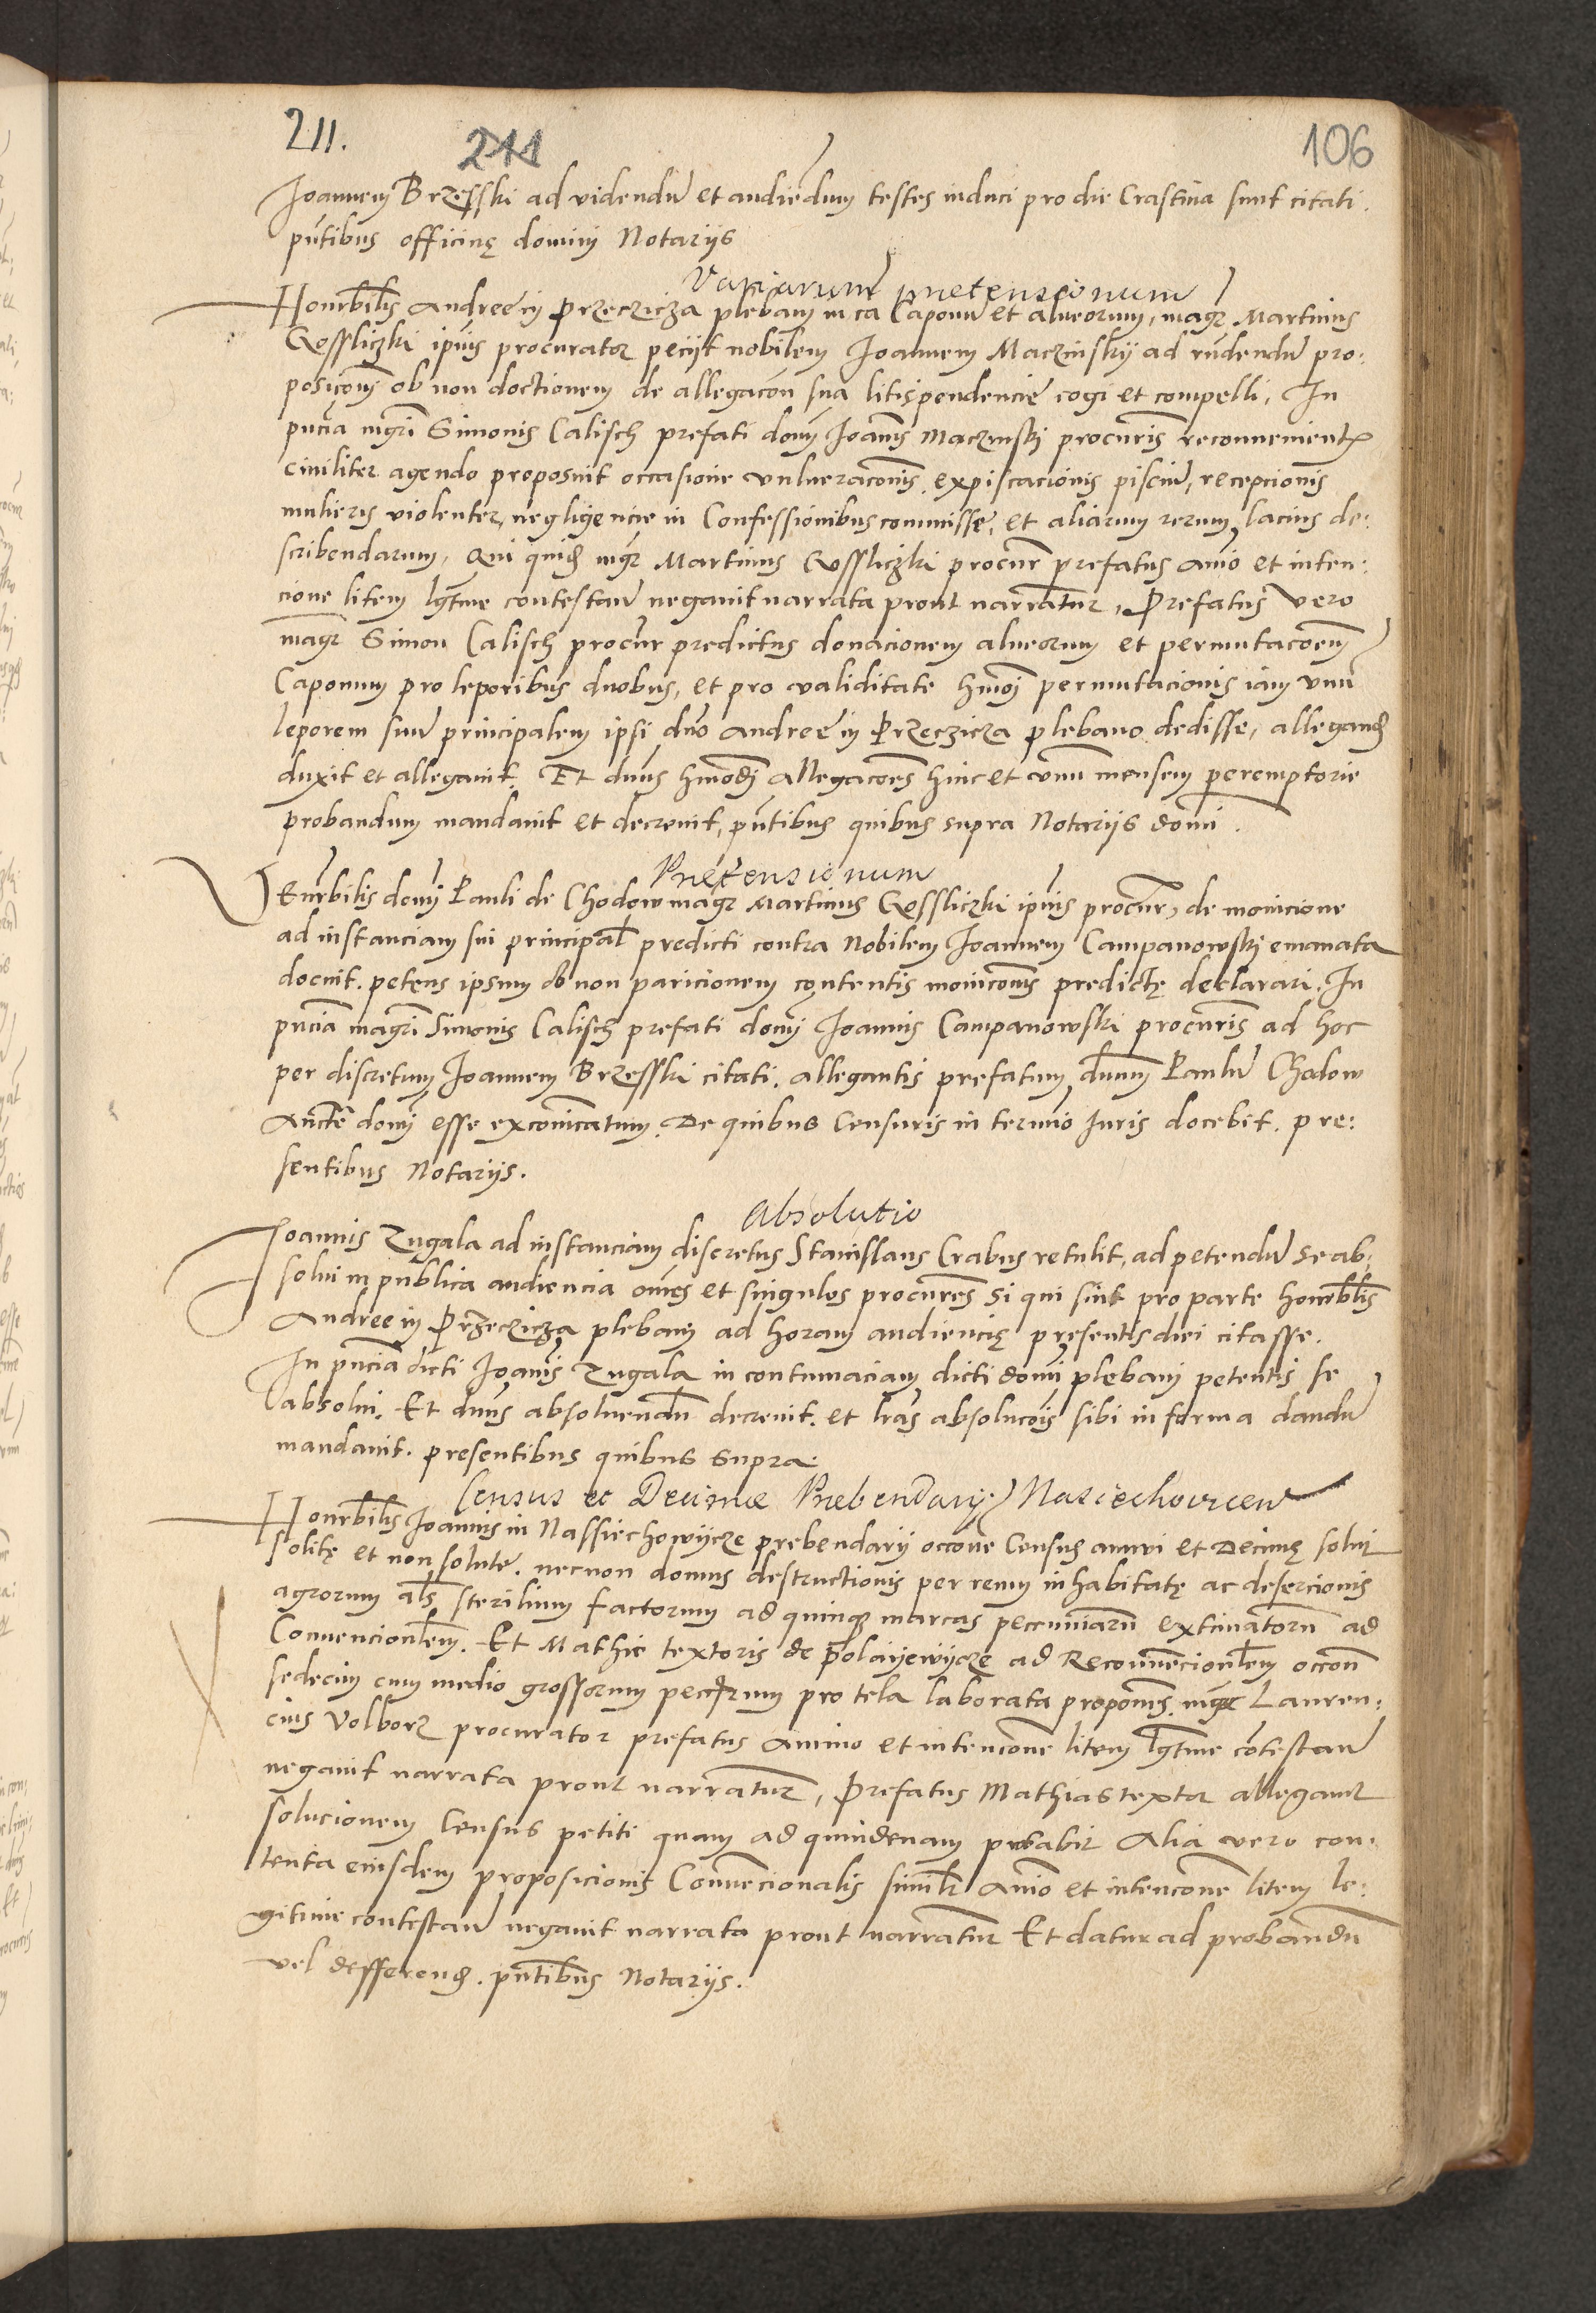 211. 211 106
Joannem Brzesski ad videndū et audiēdum testes induci pro die Crastina sunt citati.
pn̄tibus officinę domini Notarijs
Variarum prætensionum
Honrbīlis Andree in Przeczicza plebani in ca Caponū et alueorum, magr̄ Martinus
Gossliczki ip̄ius procurator peciit nobilem Joannem Maczinskij ad rn̄dendū pro:
posicōni ob non doctionem de allegacōn sua litispendencie cogi et compelli, In
pn̄cia mgr̄i Simonis Calisch prefati domī Joanīs Maczinski procūris reconuenient
ciuiliter agendo proposuit occasione vulneracōnis, expiscacionis pisciū, recepcionis
mulieris violenter, negligencie in Confessionibus commisse, et aliarum rerum lacius de:
scribendarum, Qui quid mgr̄ Martinus Gossliczki procūr prefatus anīo et inten:
cione litem lgt̄ime contestan̄ negauit narrata prout narrantur, Prefatus vero
magr̄ Simon Calisch procūr predictus donacionem alueorum et permutacōem
Caponum pro leporibus duobus, et pro validitate hmōi permutacionis iam vnū
leporem suū principalem ipsi dn̄o Andree in Przeczicza plebano dedisse, allegand
duxit et allegauit. Et dn̄us hmōdi Allegacōes hinc et vnum mensem peremptorie
probandum mandauit et decreuit, pn̄tibus quibus supra Notarijs domī.
Prætensionum
Venrbilis domī Pauli de Chodow magr̄ Martinus Gossliczki ip̄ius procūr, de monicione
ad instanciam sui principal̄ predicti contra Nobilem Joannem Campanowski emanata
docuit. petens ipsum ob non paricionem contentis monicōnis predictę declarari. In
pn̄cia magr̄i Simonis Calisch prefati domī Joannis Campanowski procūris ad hoc
per discretum Joannem Brzesski citati. allegantis prefatum dn̄um Paulū Chodow
Auctē domī esse excōmicatum. De quibus Censuris in termīo Juris docebit. pre:
sentibus Notarijs.
Absolutio
Joannis Zugala ad instanciam discretus Stanislaus Crabus retulit, ad petendū se ab:
solui in publica audiencia om̄es et singulos procūres si qui sint pro parte honrbl̄is
Andree in Przeczicza plebani ad horam audiencię presentis diei citasse.
In pn̄cia dicti Joanīs Zugala in contumaciam dicti domī plebani petentis se
absolui. Et dn̄us absoluendū decreuit. et lr̄as absolucōis sibi in forma dandū
mandauit. presentibus quibus supra.
Census et Decimæ Præbendarij Nasiechovicen
Honrbīlis Joannis in Nassiechowijcze prebendarij occōne Census annui et Decimę solui
solitę et non solute. necnon domus destructionis per reum inhabitatę ac desercionis
agrorum al̄s sterilium factorum ad quinq marcas pecuniarū extimatorū ad
Conuencionl̄em. Et Mathie textoris de Polaijewijcze ad Reconuēncionl̄em occōn
sedecim cum medio grossorum pro tela laborata propon̄is. mgr Lauren:
cius Volborz procurator prefatus animo et intencōne litem lgt̄ime cōtestan̄
negauit narrata prout narrantur, Prefatus Mathias textor allegauit
solucionem Census petiti quam ad quindenam probabit Alia vero con:
tenta eiusdem proposicionis Conuēncionalis simil̄r Anīo et intencōne litem le:
gitime contestan̄ negauit narrata prout narrantur Et datur ad probandū
vel defferend. pn̄tibus Notarijs.